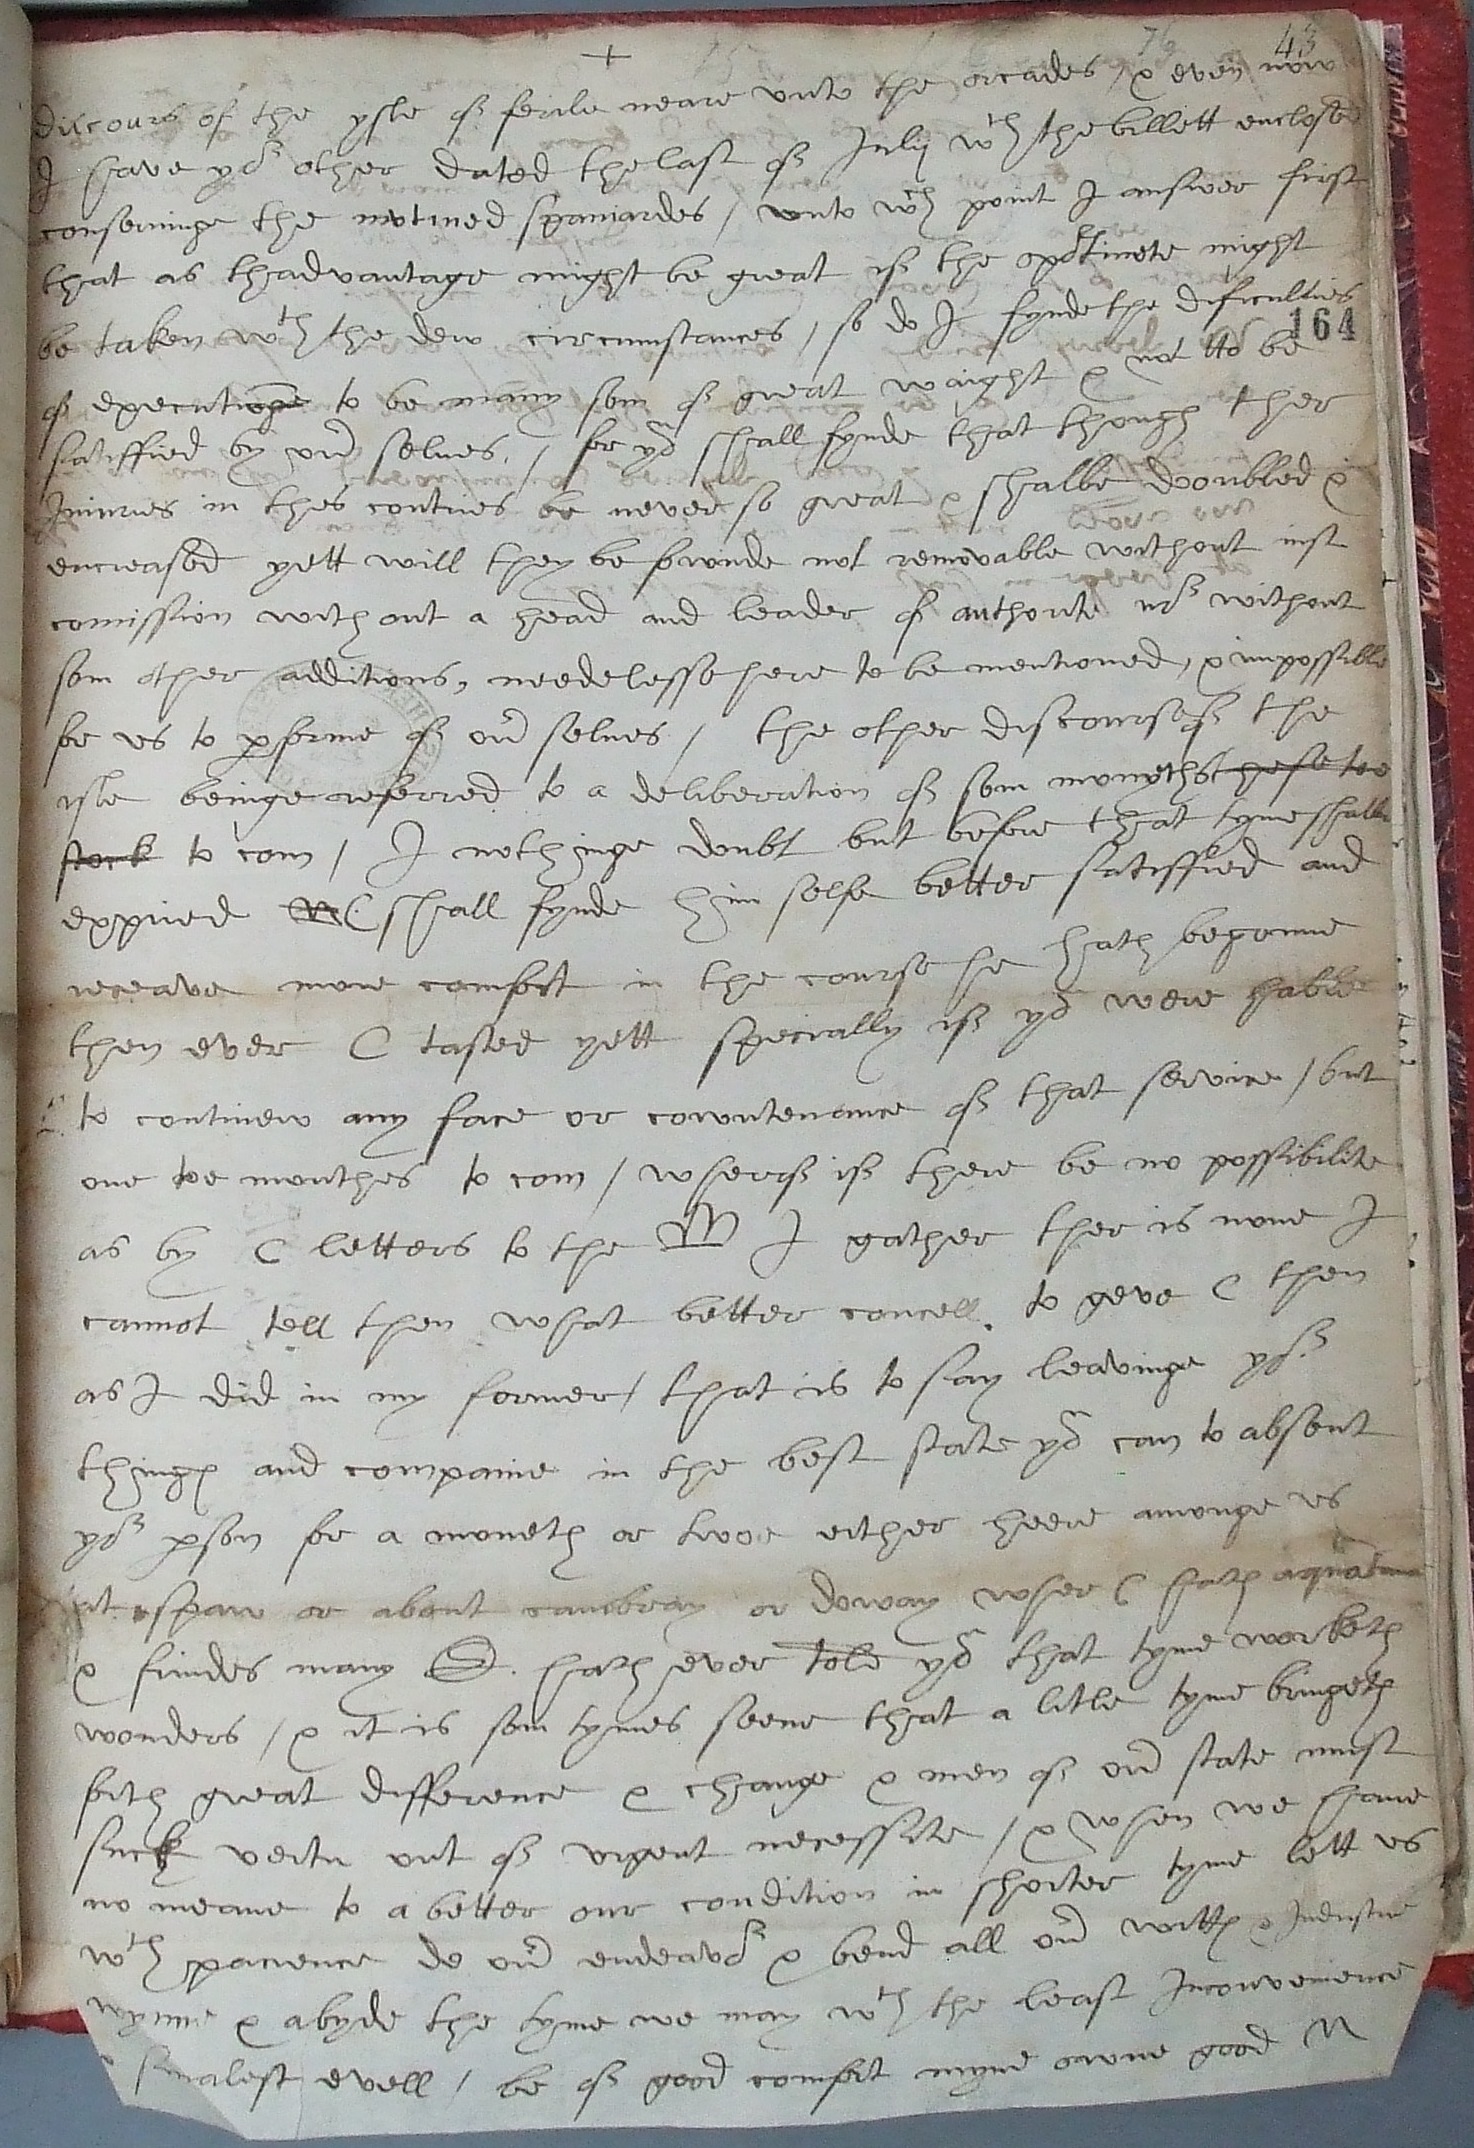 +
76
43
discours of the ysle of ferile neare unto the orcades, & even now
I have yor other dated the last of Julij wth the billett enclosed
conserninge the mutined spaniardes / unto wch point I answer first
that as thadvantage might be great if the oportinete might
be taken wth the dew circumstances, so do I fynde the dificulties
164
of executinge to be many som of great waight & not to be
satisffied by our selves. / for you shall fynde that though ther
Iniuries in thes contries be never so great & shalbe doubled &
encreased yett will they be fownde not removable without iust
comission without a head and leader of authorite nor without
som other additions, needelesse here to be mentioned, & impossible
for us to performe of our selves / the other discourse of the
isle beinge referred to a deliberation of som monethes
to com / I nothinge doubt but before that tyme shalbe
expired C shall fynde him selfe better satisffied and
receave more comfort in the course he hath begonne
then ever C tasted yett specially if you were hable
to continew any face or cowntenance of that service / but
one toe monthes to com / wherof if there be no possibilite
as by C letters to the M I gather ther is none I
cannot tell then what better concell to geve C then
as I did in my former / that is to say leavinge yor
thinges and companie in the best state you can to absent
yor person for a moneth or twoe either heere amonge us
at spaw or about cambray or doway wher C hath aquatance
& frindes many S. hath ever tolde you that tyme worketh
wonders / & it is som tymes seene that a litle tyme bringeth
forth great difference & change & men of our state must
suck vertu out of urgent necessite / & when we have
no meane to a better our condition in shorter tyme lett us
wth pacience do our endeavor & bend all our wittes & Industrie
wynne & abyde the tyme we may wth the least Inconvenience
smalest evell / be of good comfort myne owne good M